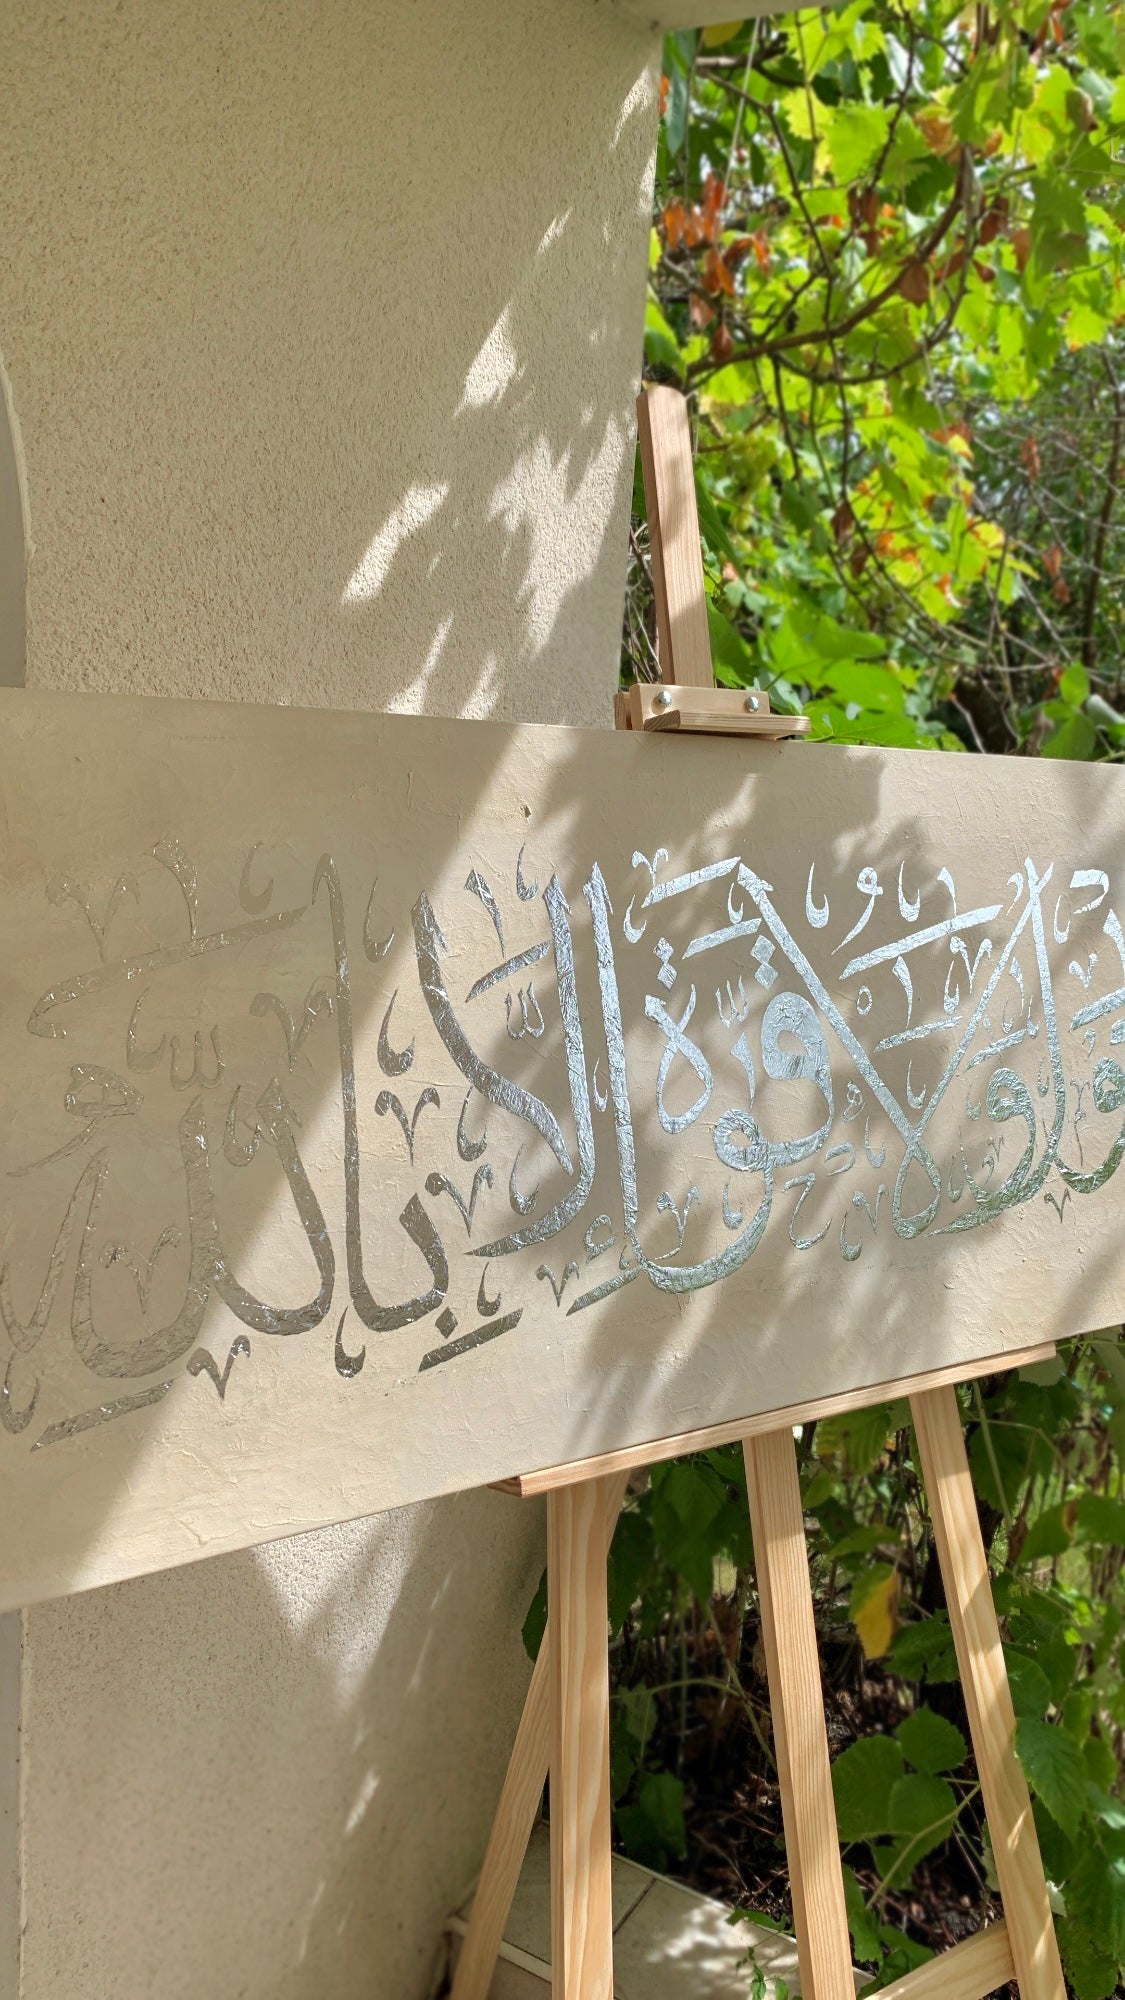 ولا قوة إلا بالله